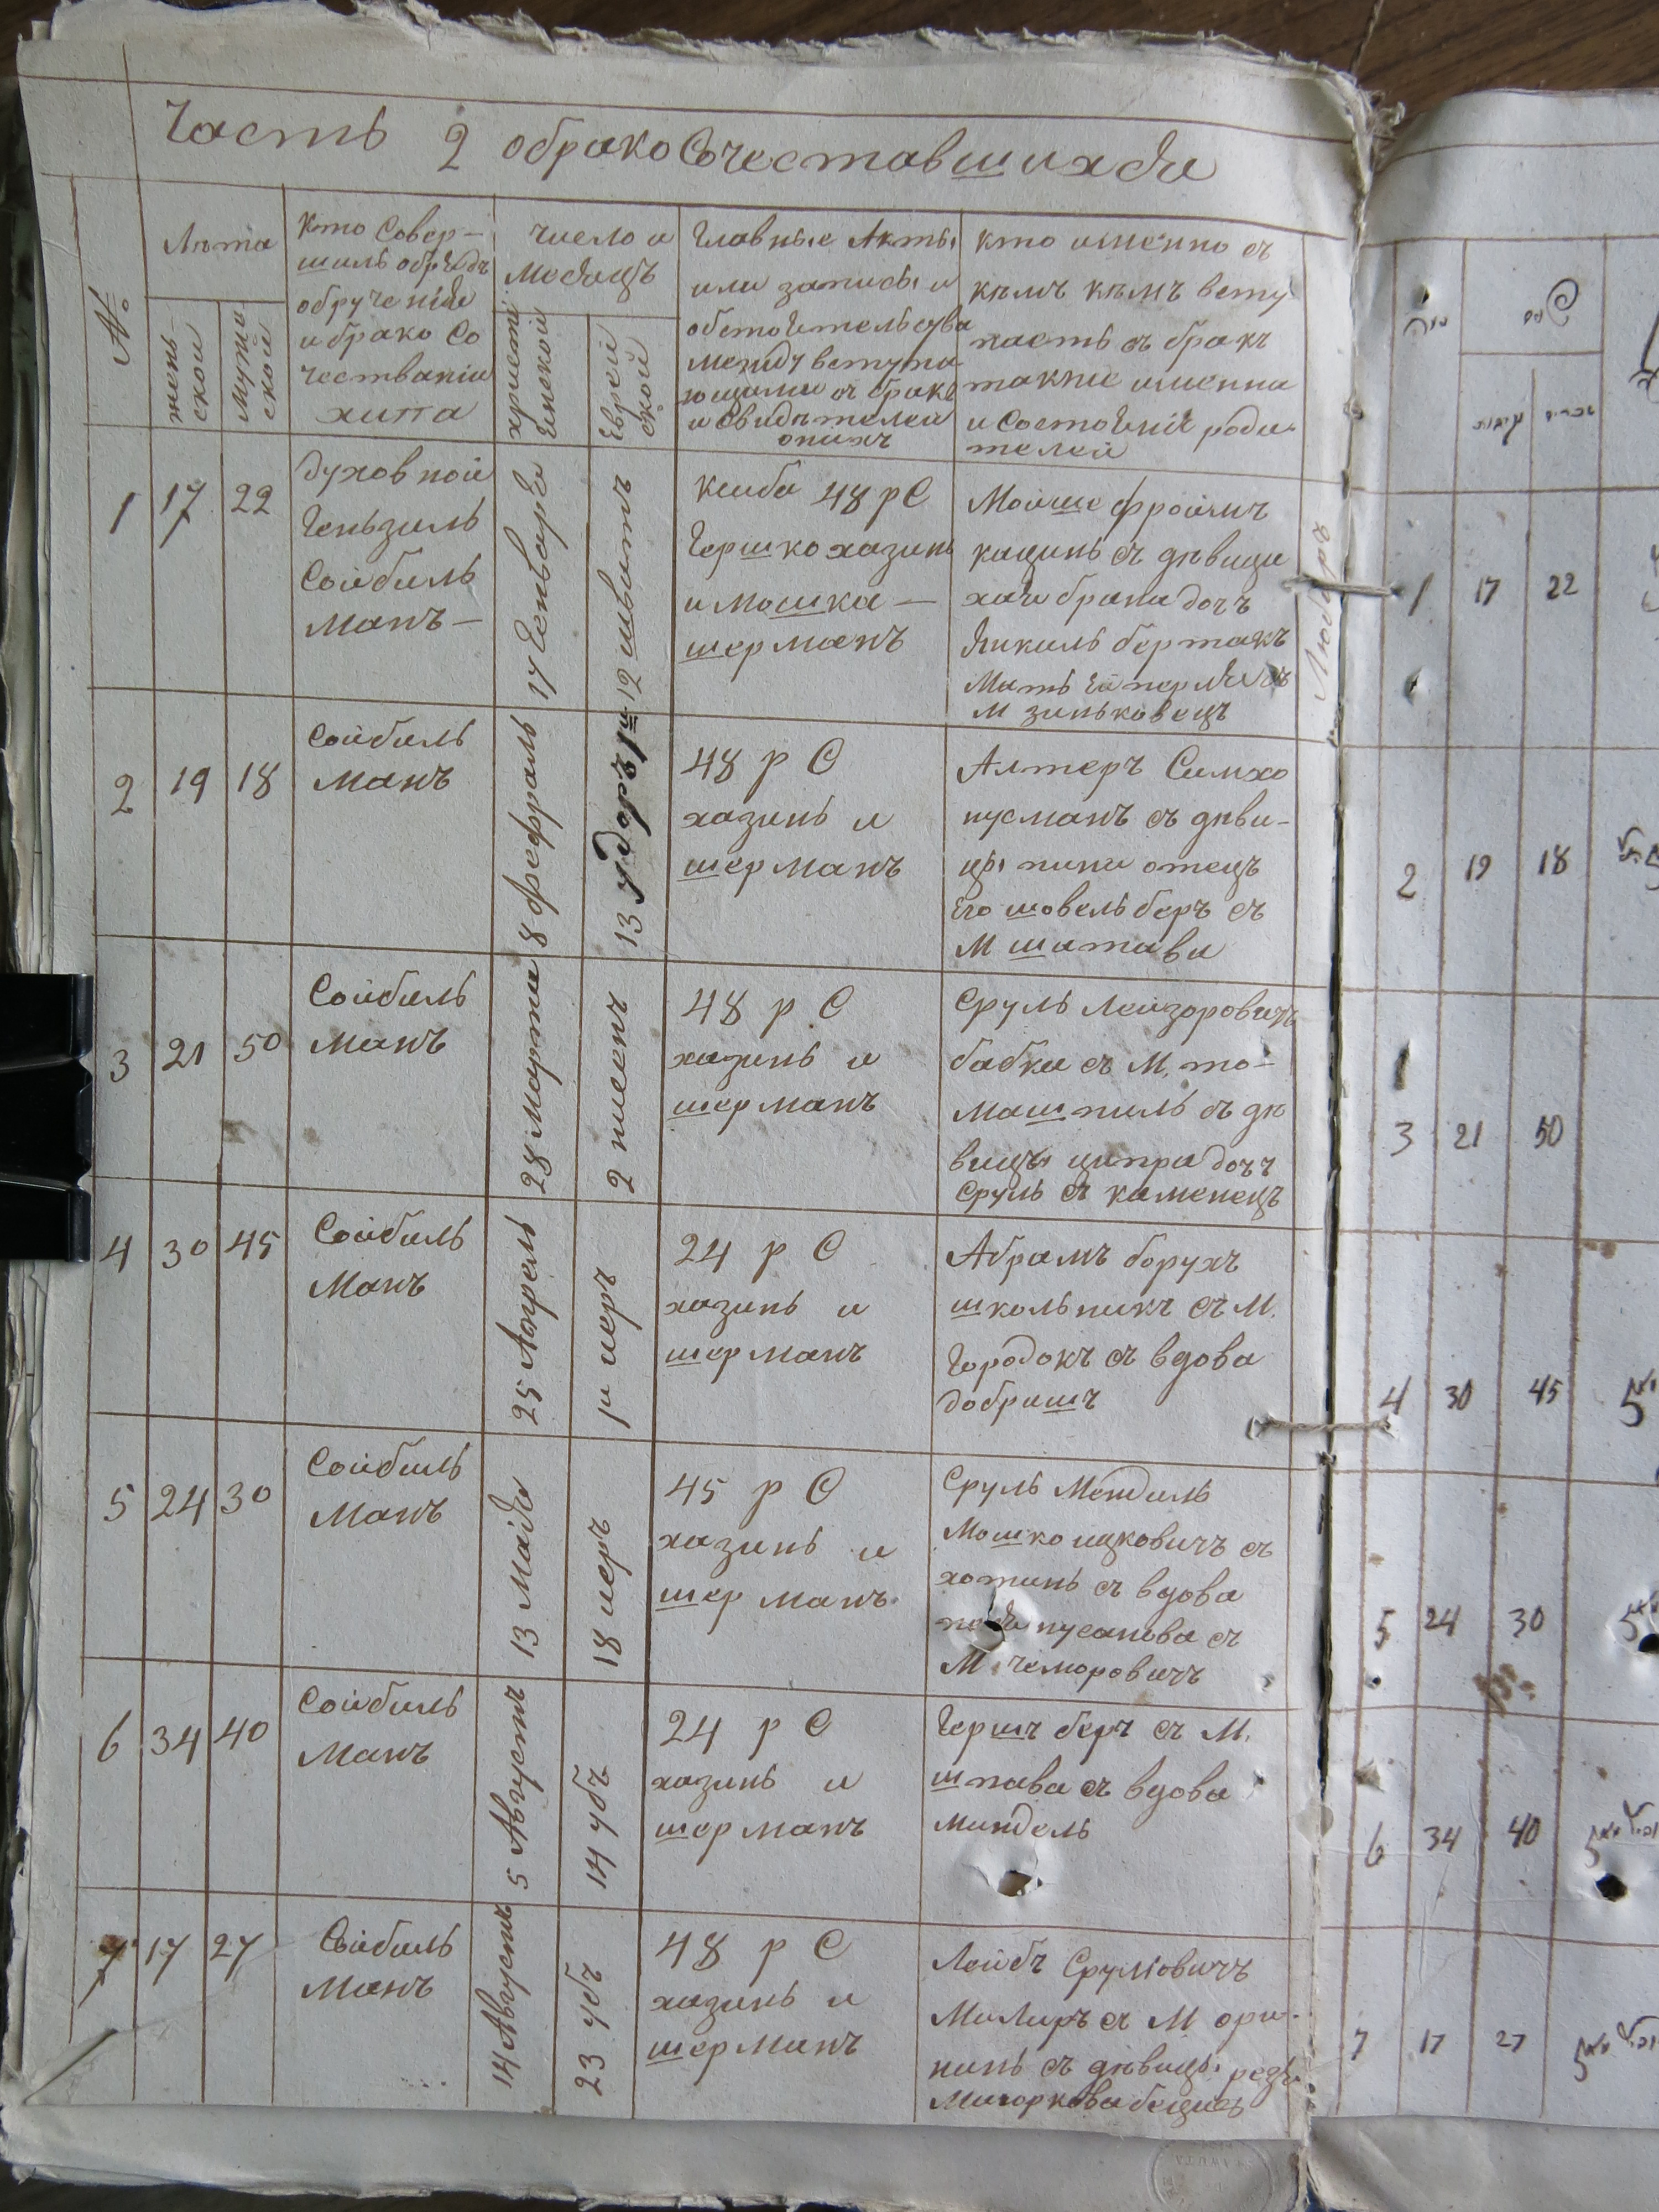 Часть 2 обракосочеставшихся
№
Лѣта
женской
мужиской
кто совер-
шилъ обрядъ
обручения
и брако со
чествания
хипа
число и
месяцъ
християнской
Еврейской
Главные Акты
или записы и
обстоятельства
между вступа
ющими въ бракъ
и свидѣтелей
онихъ
кто именно съ
кѣмъ кѣмъ всту
паетъ въ бракъ
также именна
и состояния роди
телей
1
17
22
духовной
Геньзиль
Сойбиль
Манъ-
17 Геньваря
12 шватъ
48 р С
Гершко хазинъ
и мошка -
шерманъ
Мойше фроимъ
кацинъ съ дѣвици
дочъ
М зиньковецъ
2
19
18
Сойбиль
манъ
8 февраль
13 удоръ 1й
48 р С
хазинъ и
шерманъ
Алтеръ Симхо
пусманъ съ дѣви-
цы пипи отецъ
Его шовель беръ съ
М шатава
3
21
50
Сойбиль
Манъ
28 Марта
2 нисенъ
48 р С
хазинъ и
шерманъ
Сруль Лейзоровичъ
бабка съ М. то-
машпиль съ дѣ
вицы ципра дочъ
Сруль съ каменецъ
4
30
45
Сойбиль
Манъ
25 Апрель
иеръ
24 р С
хазинъ и
шерманъ
Абрамъ борухъ
школьникъ съ М.
Городокъ съ вдова
добришъ
5
24
30
Сойбиль
Манъ
13 Майя
18 иеръ
45 р С
хазинъ и
шерманъ
Сруль Мендиль
Мошко ицковичъ съ
хотинъ съ вдова
пусанова съ
М чеморовичъ
6
34
40
Сойбиль
Манъ
5 Августъ
14 убъ
24 р С
хазинъ и
шерманъ
Гершъ беръ съ М.
шпава съ вдова
миндель
7
17
27
Сойбиль
Манъ
14 Августъ
23 убъ
48 р С
хазинъ и
шерманъ
Лейбъ Срулювичъ
Милиръ съ М ори-
нинъ съ дѣвицы
1 17 22
2 19 18
3 21 50
4 30 45
5 24 30
6 34 40
7 17 27